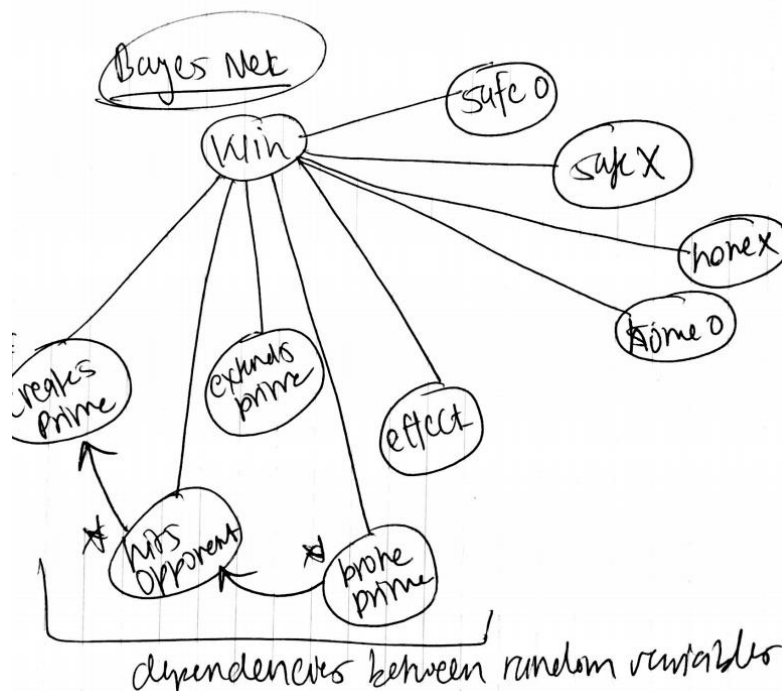 Bayes Net
safe O
Win
safe X
home X
home O
creates
prime
extends
prime
effect
hits
opponent
broke
prime
dependencies between random variables